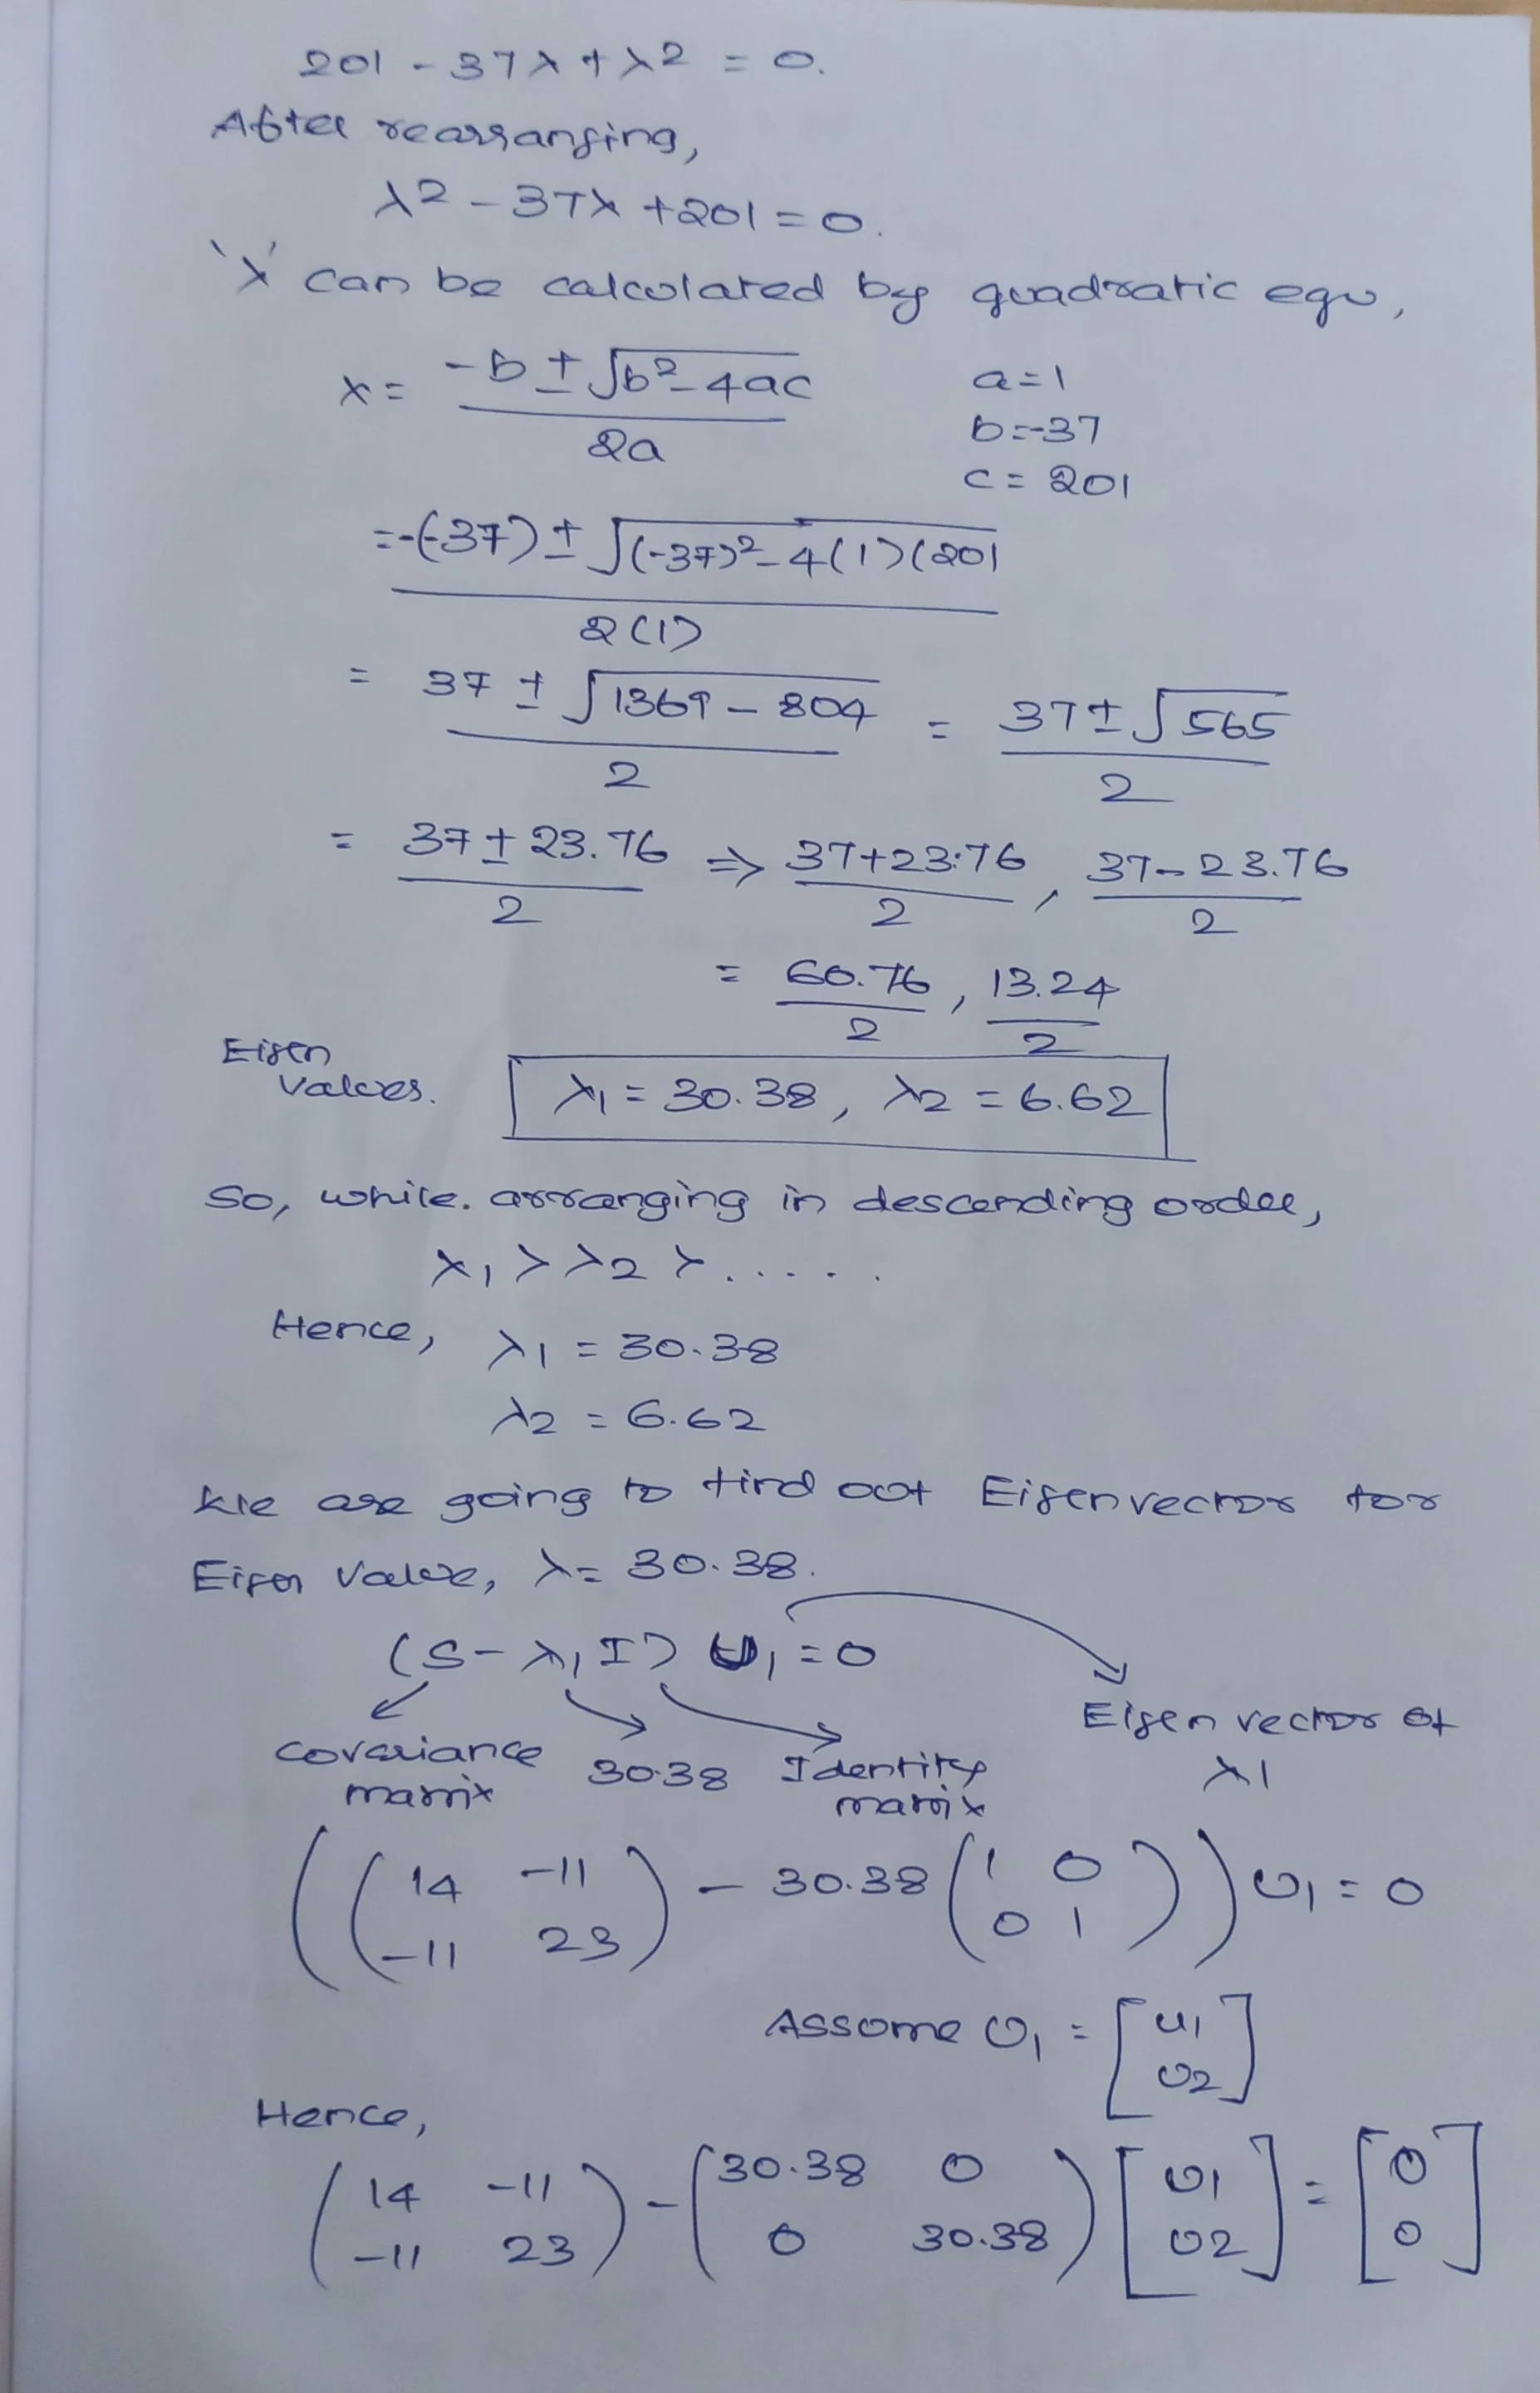 201 - 37λ + λ2 = 0.
After rearranging,
λ2 - 37λ + 201 = 0.
'λ' can be calculated by quadratic equ,
x = -b ± √b² - 4ac / 2a
a = 1
b = -37
c = 201
= -(-37) ± √(-37)² - 4(1)(201 / 2(1)
= 37 ± √1369 - 804 / 2 = 37 ± √565 / 2
= 37 ± 23.76 / 2 ⇒ 37 + 23.76 / 2 , 37 - 23.76 / 2
= 60.76 / 2 , 13.24 / 2
Eigen
Values.
λ1 = 30.38, λ2 = 6.62
So, while. arranging in descending order,
λ1 > λ2 > .....
Hence, λ1 = 30.38
λ2 = 6.62
We are going to find out Eigenvector for
Eigen Value, λ = 30.38.
(S - λ1 I) U1 = 0
Eigen vector of
λ1
Covariance
matrix
30.38
Identity
matrix
((14 -11
-11 23) - 30.38 (1 0
0 1)) U1 = 0
Assume U1 = [u1
U2]
Hence,
(14 -11
-11 23) - (30.38 0
0 30.38) [U1
U2] = [0
0]